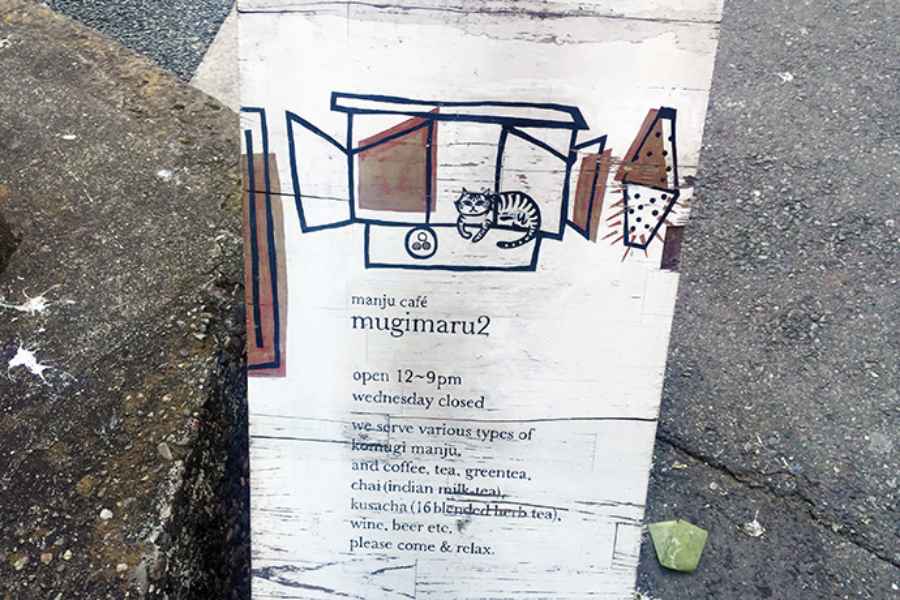 manju café
mugimaru2
open 12~9pm
wednesday closed
we serve various types of
komugi manju,
and coffee, tea, greentea,
chai (indian milk-tea),
kusacha (16 blended herb tea),
wine, beer etc.
please come & relax.